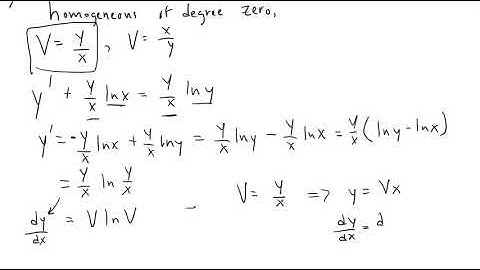 homogeneous of degree zero,
V = y/x , V = x/y
y' + y/x ln x = y/x ln y
y' = - y/x ln x + y/x ln y = y/x ln y - y/x ln x = y/x ( ln y - ln x )
= y/x ln y/x
V = y/x => y = Vx
dy/dx = V ln V
dy/dx = d